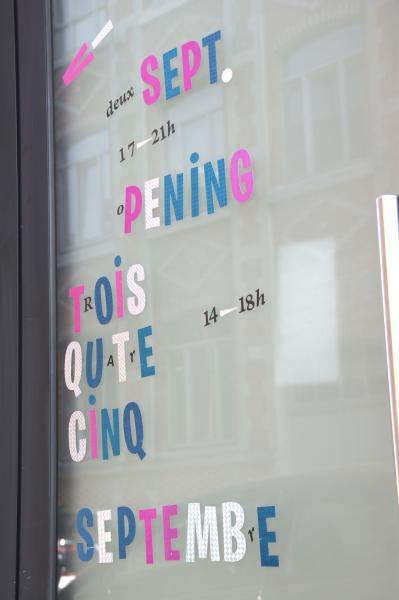 deux SEPT.
17—21h
oPENiNG
TROiS
14—18h
QUATrE
CiNQ
SEPTEMBrE